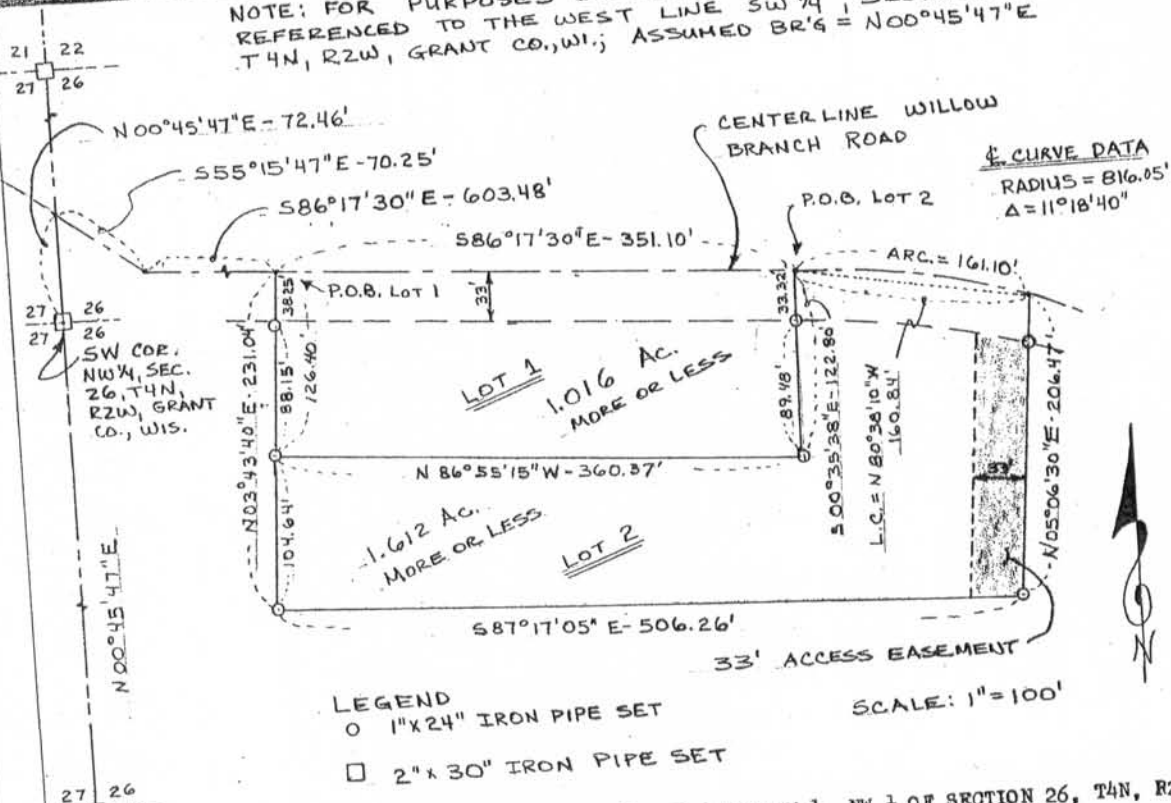 NOTE: FOR PURPOSES
REFERENCED TO THE WEST LINE SW ¼,
T4N, R2W, GRANT CO., WI.; ASSUMED BR'G = N00°45'47"E
21 22
27 26
N00°45'47"E - 72.46'
S55°15'47"E - 70.25'
S86°17'30"E - 603.48'
CENTERLINE WILLOW
BRANCH ROAD
℄ CURVE DATA
RADIUS = 816.05'
Δ = 11°18'40"
P.O.B. LOT 2
S86°17'30"E - 351.10'
ARC. = 161.10'
38.25'
P.O.B. LOT 1
33'
33.32'
27 26
27 26
SW COR.
NW¼, SEC.
26, T4N,
R2W, GRANT
CO., WIS.
N03°43'40"E - 231.04'
88.15'
126.40'
LOT 1
1.016 AC.
MORE OR LESS
89.48'
S00°35'38"E - 122.80'
L.C. = N80°38'10"W
160.84'
33'
N05°06'30"E - 206.47'
N86°55'15"W - 360.37'
104.64'
1.612 AC.
MORE OR LESS
LOT 2
S87°17'05"E - 506.26'
33' ACCESS EASEMENT
N
N00°45'47"E
LEGEND
O 1"X24" IRON PIPE SET
□ 2"x30" IRON PIPE SET
SCALE: 1"=100'
27 26
OF SECTION 26, T4N,